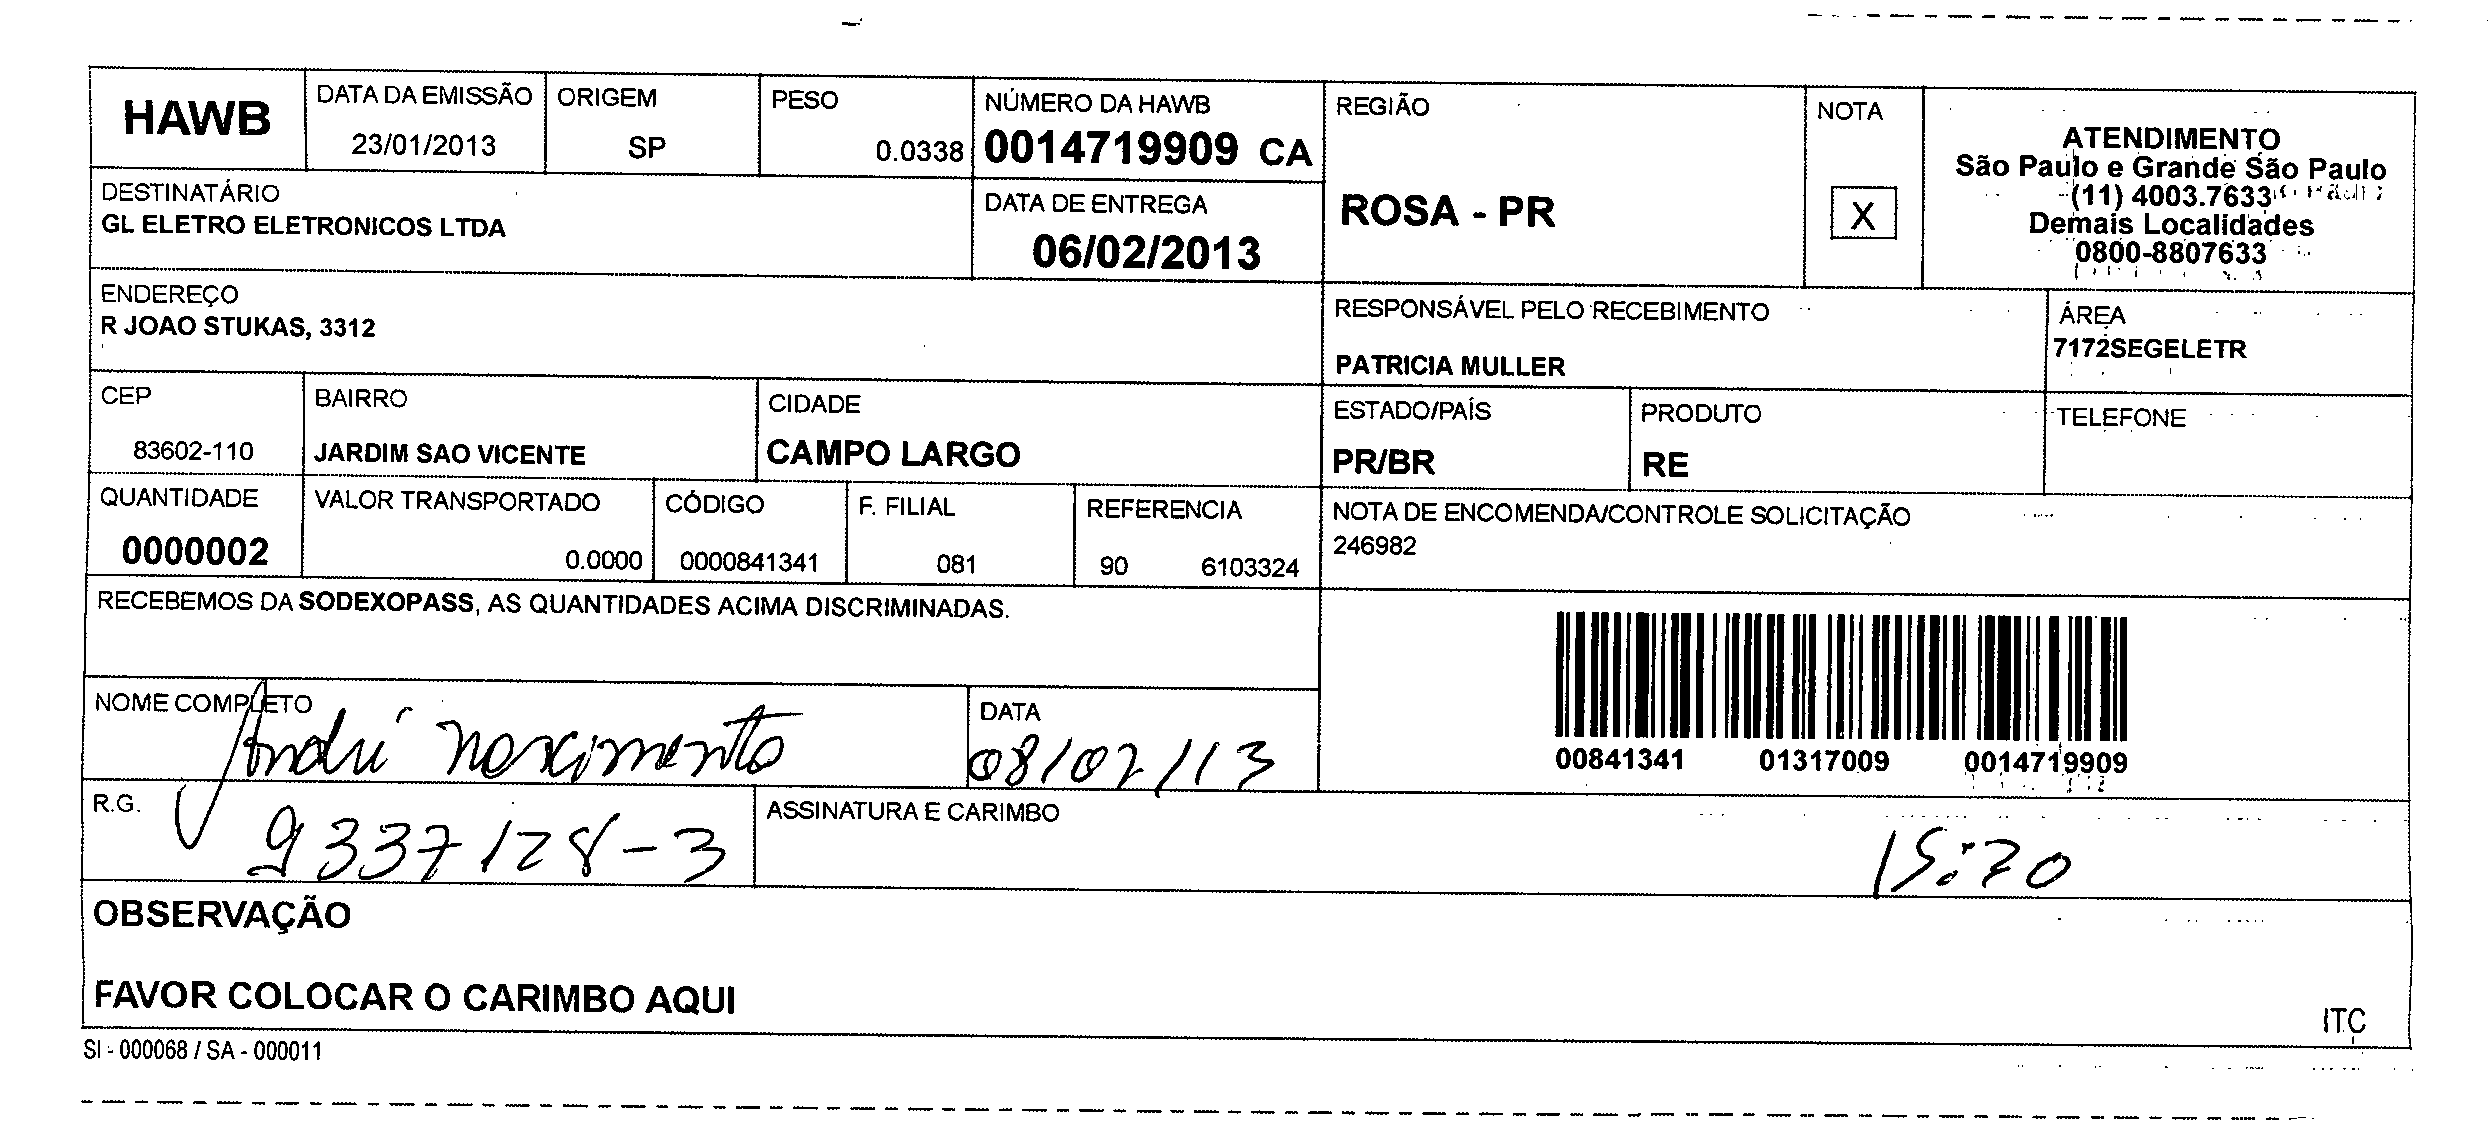 HAWB
DATA DA EMISSÃO
23/01/2013
ORIGEM
SP
PESO
0.0338
NÚMERO DA HAWB
0014719909 CA
REGIÃO
ROSA - PR
NOTA
X
ATENDIMENTO
São Paulo e Grande São Paulo
(11) 4003.7633
Demais Localidades
0800-8807633
DESTINATÁRIO
GL ELETRO ELETRONICOS LTDA
DATA DE ENTREGA
06/02/2013
ENDEREÇO
R JOAO STUKAS, 3312
RESPONSÁVEL PELO RECEBIMENTO
PATRICIA MULLER
ÁREA
7172SEGELETR
CEP
83602-110
BAIRRO
JARDIM SAO VICENTE
CIDADE
CAMPO LARGO
ESTADO/PAÍS
PR/BR
PRODUTO
RE
TELEFONE
QUANTIDADE
0000002
VALOR TRANSPORTADO
0.0000
CÓDIGO
0000841341
F. FILIAL
081
REFERENCIA
90 6103324
NOTA DE ENCOMENDA/CONTROLE SOLICITAÇÃO
246982
RECEBEMOS DA SODEXOPASS, AS QUANTIDADES ACIMA DISCRIMINADAS.
NOME COMPLETO
André Nascimento
DATA
08/02/13
00841341 01317009 0014719909
R.G.
9337128-3
ASSINATURA E CARIMBO
15:20
OBSERVAÇÃO
FAVOR COLOCAR O CARIMBO AQUI
ITC
SI - 000068 / SA - 000011